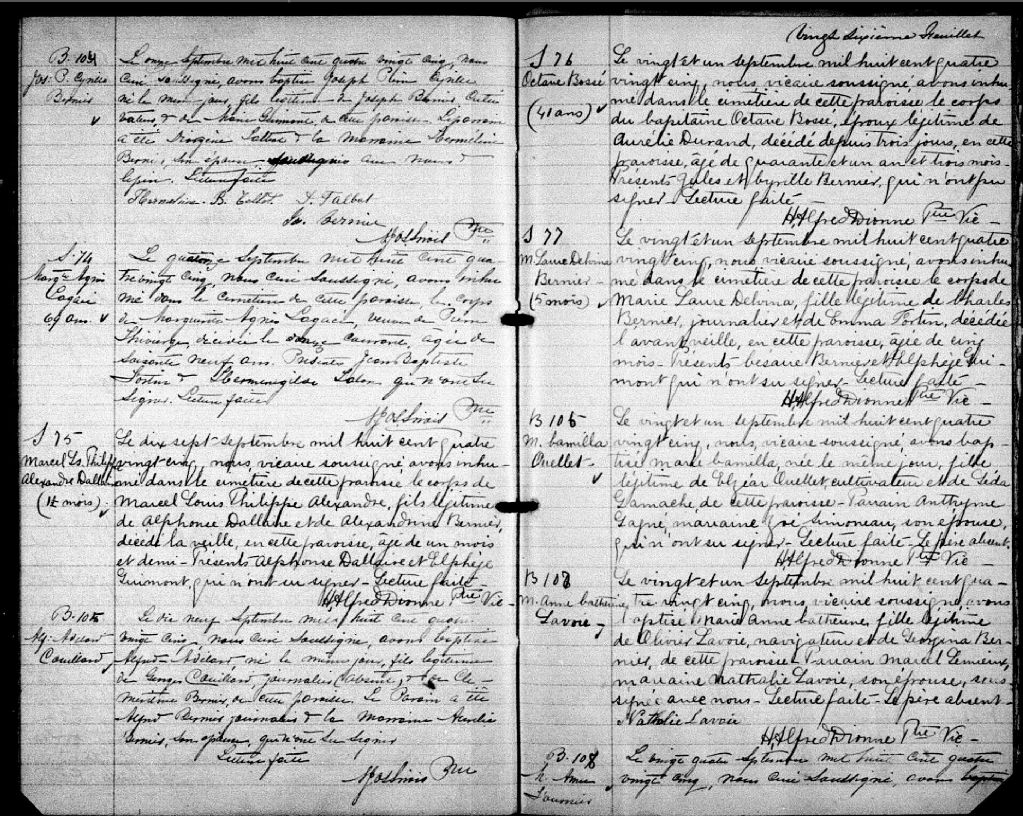 B. 104
Jos: P. Cyrille
Bernier
Le onze Septembre mil huit cent quatre vingt cinq, nous
Curé soussigné, avons baptisé Joseph Cyrille
né le même jour, fils légitime de Joseph Bernier, Culti
vateur & de Marie de cette paroisse. Le parrain
a été & la Marraine
Bernier, son épouse
Lecture faite
B. Talbot A. Talbot
Bernier
Ptre
S. 74
Margte Agnès
Gagné
69 ans.
Le quatorze Septembre mil huit cent qua
tre vingt cinq, nous Curé soussigné, avons inhu
mé dans le cimetière de cette paroisse le corps
de Marguerite Agnès veuve de Pierre
Thivierge, décédée le courant, agée de
Soixante neuf ans. Présents Jean Baptiste
Fortin & Herménégilde qui n'ont su
Signer. Lecture faite
Ptre
S 75
Marcel Ls. Philippe
Alexandre Dallaire
(1½ mois)
Le dix sept Septembre mil huit cent quatre
vingt cinq, nous, vicaire soussigné avons inhu-
mé dans le cimetière de cette paroisse le corps de
Marcel Louis Philippe Alexandre, fils légitime
de Alphonse Dallaire et de Alexandrine Bernier,
décédé la veille, en cette paroisse, âgé de un mois
et demi - Présents Alphonse Dallaire et Elphège
Guimont, qui n'ont su signer - Lecture faite -
H. Alfred Dionne Ptre Vic -
B. 105
Alf: Adélard
Couillard
Le dix neuf Septembre mil huit cent quatre
vingt cinq, nous Curé Soussigné, avons baptisé
Alfred-Adélard, né le même jour, fils légitime
de Georges Couillard journalier (absent) & de Clé-
mentine Bernier de cette paroisse. Le Parrain a été
Alfred Bernier journalier & la Marraine Aurélie
Bernier, son épouse, qui n'ont su signer
Lecture faite
Ptre
Vingt Sixième Feuillet
S 76
Octave Bossé
(41 ans)
Le vingt et un septembre mil huit cent quatre
vingt cinq, nous, vicaire soussigné avons inhu-
mé dans le cimetière de cette paroisse le corps
du capitaine Octave Bosse, époux légitime de
Aurélie Durand, décédé depuis trois jours, en cette
paroisse, âgé de quarante et un an et trois mois -
Présents Jules et Cyrille Bernier, qui n'ont pu
signer - Lecture faite -
H. Alfred Dionne Ptre Vic -
S 77
M. Laure Delvina
Bernier -
(5 mois)
Le vingt et un septembre mil huit cent quatre
vingt cinq, nous vicaire soussigné, avons inhu
mé dans le cimetière de cette paroisse le corps de
Marie Laure Delvina, fille légitime de Charles
Bernier, journalier et de Emma Fortin, décédée
l'avant veille, en cette paroisse, âgée de cinq
mois - Présents Césaire Bernier et Elphège Gui-
mont qui n'ont su signer - Lecture faite -
H. Alfred Dionne Ptre Vic -
B 106
M. Camilla
Ouellet -
Le vingt et un septembre mil huit cent quatre
vingt cinq, nous, vicaire soussigné avons bap
tisé Marie Camilla, née le même jour, fille
légitime de Elzéar Ouellet, cultivateur et de Léda
Gamache, de cette paroisse - Parrain Anthyme
Gagné, marraine Zoé Simoneau, son épouse,
qui n'ont su signer - Lecture faite - Le père absent -
H. Alfred Dionne Ptre Vic -
B 107
M. Anne Catherine
Lavoie -
Le vingt et un septembre mil huit cent qua-
tre vingt cinq, nous, vicaire soussigné, avons
baptisé Marie Anne Catherine, fille légitime
de Olivier Lavoie, navigateur et de Georgina Ber-
nier, de cette paroisse - Parrain Marcel Lemieux,
marraine Nathalie Lavoie, son épouse, sous-
signée avec nous - Lecture faite - Le père absent -
Nathalie Lavoie
H. Alfred Dionne Ptre Vic -
B. 108
Anne
Fournier
Le vingt quatre Septembre mil huit cent quatre
vingt cinq, nous Curé Soussigné, avons baptisé